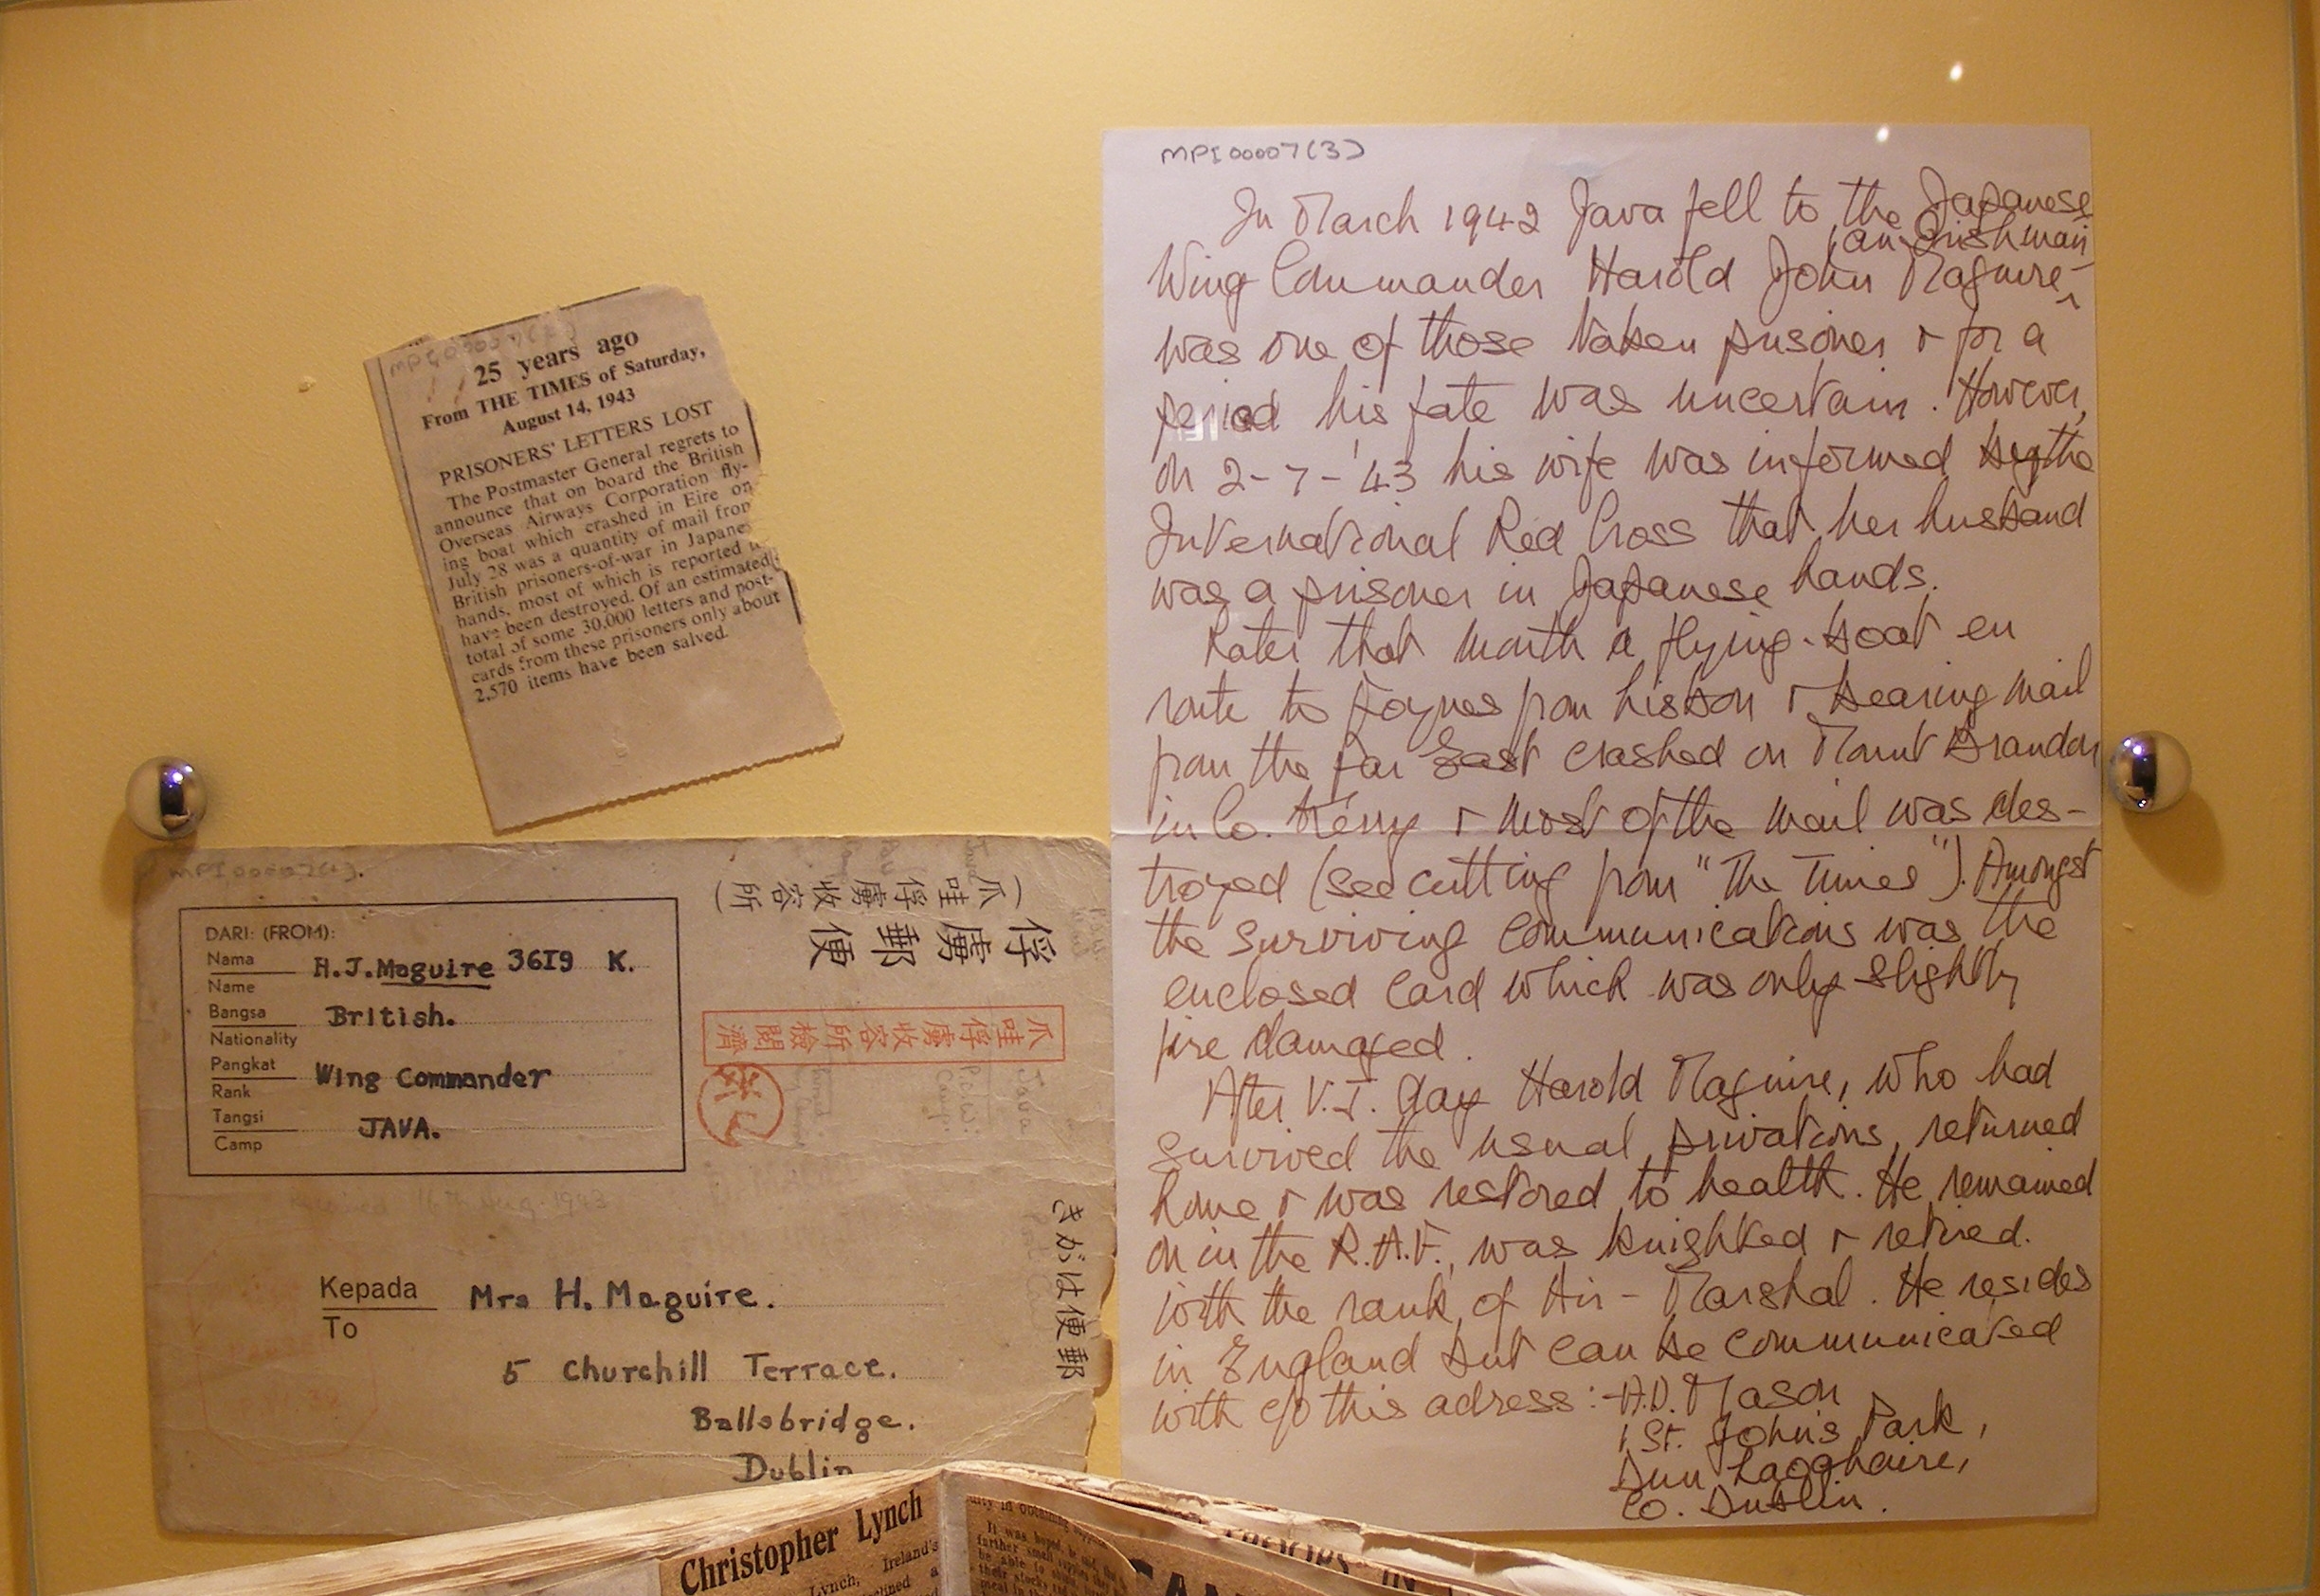 25 years ago
From THE TIMES of Saturday,
August 14, 1943
PRISONERS' LETTERS LOST
The Postmaster General regrets to
announce that on board the British
Overseas Airways Corporation fly-
ing boat which crashed in Eire on
July 28 was a quantity of mail from
British prisoners-of-war in Japanes
hands, most of which is reported to
have been destroyed. Of an estimated
total of some 30,000 letters and post-
cards from these prisoners only about
2,570 items have been salved.
MPI00007(1).
DARI: (FROM):
Nama
Name
H.J. Maguire 3619 K.
Bangsa
Nationality
British.
Pangkat
Rank
Wing Commander
Tangsi
Camp
JAVA.
(爪哇俘虜收容所)
俘虜郵便
爪哇俘虜收容所檢閲濟
Received 16th Aug. 1943
きがは便郵
Kepada
To
Mrs H. Maguire.
5 Churchill Terrace.
Ballsbridge.
Dublin
MPI00007(3)
In March 1942 Java fell to the Japanese
(an Irishman)
Wing Commander Harold John Maguire -
was one of those taken prisoner & for a
period his fate was uncertain. However,
on 2-7-'43 his wife was informed by the
International Red Cross that her husband
was a prisoner in Japanese hands.
Later that month a flying-boat en
route to Foynes from Lisbon & bearing mail
from the Far East crashed on Mount Brandon
in Co. Kerry & most of the mail was des-
troyed (see cutting from "The Times"). Amongst
the surviving communications was the
enclosed card which was only slightly
fire damaged.
After V.J. day Harold Maguire, who had
survived the usual privations, returned
home & was restored to health. He remained
on in the R.A.F., was knighted & retired.
with the rank of Air-Marshal. He resides
in England but can be communicated
with c/o this adress:- A.D. Mason
1 St. John's Park,
Dun Laoghaire,
Co. Dublin.
Christopher Lynch
Ireland's
Lynch,
It was hoped, he said, that
further small supplies
be able to
their stocks and
IN